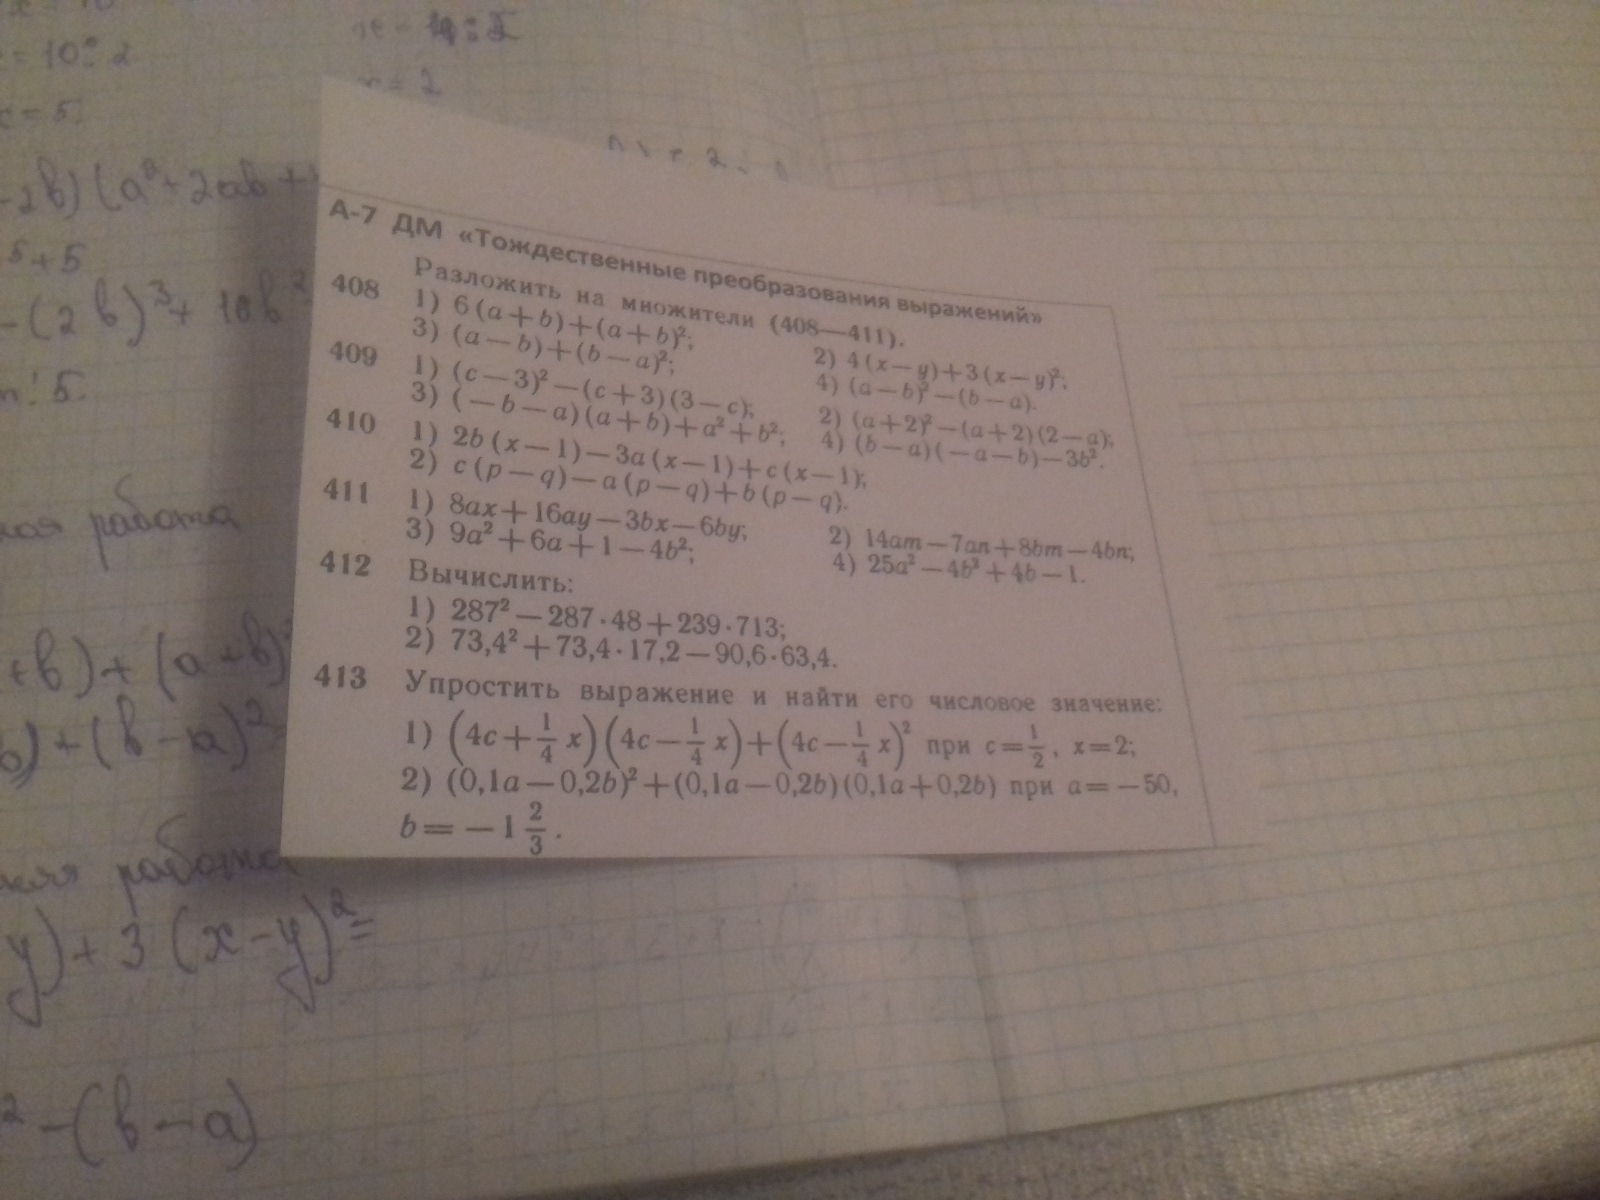 = 10 : 2
x = 2
= 5.
-2b) (a² + 2ab +
5 + 5
- (2b)³ + 10b²
: 5.
работа
+ b) + (a + b)
) + (b - a)²
работа
y) + 3 (x - y)² =
² - (b - a)
А-7 ДМ «Тождественные преобразования выражений»
Разложить на множители (408—411).
408 1) 6(a+b)+(a+b)²; 2) 4(x−y)+3(x−y)²;
3) (a−b)+(b−a)²; 4) (a−b)²−(b−a).
409 1) (c−3)²−(c+3)(3−c); 2) (a+2)²−(a+2)(2−a);
3) (−b−a)(a+b)+a²+b²; 4) (b−a)(−a−b)−3b².
410 1) 2b(x−1)−3a(x−1)+c(x−1);
2) c(p−q)−a(p−q)+b(p−q).
411 1) 8ax+16ay−3bx−6by; 2) 14am−7an+8bm−4bn;
3) 9a²+6a+1−4b²; 4) 25a²−4b²+4b−1.
412 Вычислить:
1) 287²−287·48+239·713;
2) 73,4²+73,4·17,2−90,6·63,4.
413 Упростить выражение и найти его числовое значение:
1) (4c+1/4 x)(4c−1/4 x)+(4c−1/4 x)² при c=1/2, x=2;
2) (0,1a−0,2b)²+(0,1a−0,2b)(0,1a+0,2b) при a=−50,
b=−1 2/3.